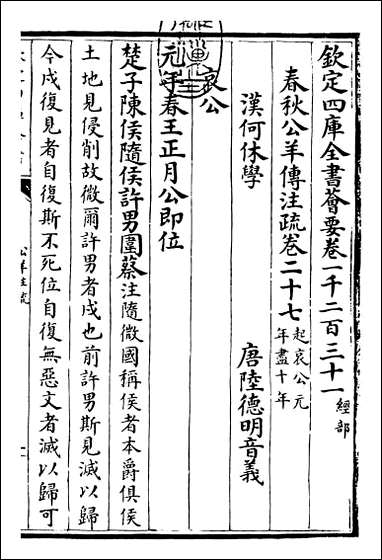 欽定四庫全書薈要卷一千二百三十一 經部
春秋公羊傳注疏卷二十七 起哀公元年盡十年
漢何休學 唐陸德明音義
哀公
元年春王正月公即位
楚子陳侯隨侯許男圍蔡注隨微國稱侯者本爵俱侯
土地見侵削故微爾許男者戌也前許男斯見滅以歸
今戌復見者自復斯不死位自復無惡文者滅以歸可
公羊注疏